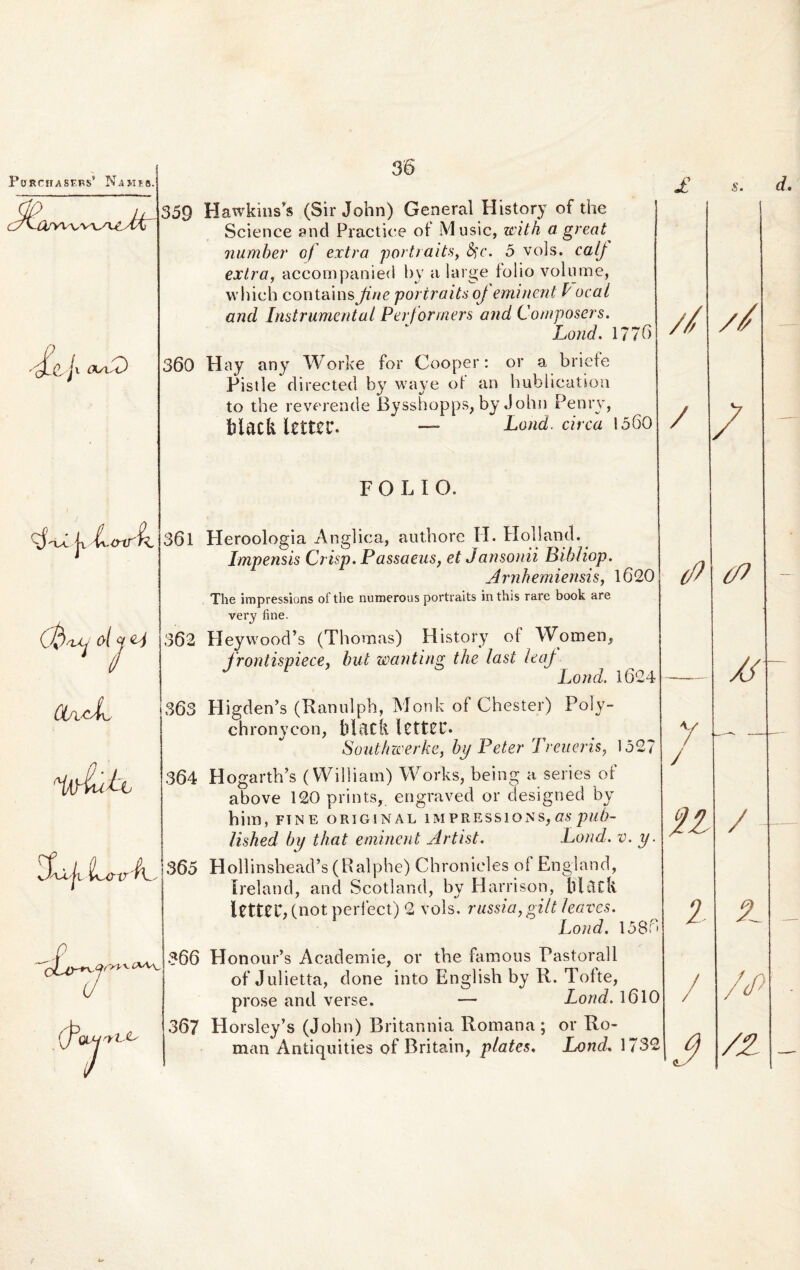 36
Purchasers' Names.
£ s. d.
Hammett
359 Hawkins's (Sir John) General History of the
Science and Practice of Music, with a great
number of extra portraits, &c. 5 vols. calf
extra, accompanied by a large folio volume,
which contains fine portraits of eminent Vocal
and Instrumental Performers and Composers.
Lond. 1776 11 11
360 Hay any Worke for Cooper: or a briefe
Pistle directed by waye of an hublication
to the reverende Bysshopps, by John Penry,
black letter. — Lond. circa 1560 1 7
FOLIO.
361 Heroologia Anglica, authore H. Holland.
Impensis Crisp. Passaeus, et Jansonii Bibliop.
Arnhemiensis, 1620
The impressions of the numerous portraits in this rare book are
very fine.
362 Heywood's (Thomas) History of Women,
frontispiece, but wanting the last leaf
Lond. 1624
Arch
363 Higden's (Ranulph, Monk of Chester) Poly-
chronycon, black letter.
Southwerke, by Peter Treueris, 1527 7 — —
White
364 Hogarth's (William) Works, being a series of
above 120 prints, engraved or designed by
him, FINE ORIGINAL IMPRESSIONS, as pub-
lished by that eminent Artist. Lond. v. y. 22 1
365 Hollinshead's (Ralphe) Chronicles of England,
Ireland, and Scotland, by Harrison, black
letter, (not perfect) 2 vols. russia, gilt leaves.
Lond. 1586 2 2
Longman
366 Honour's Academie, or the famous Pastorall
of Julietta, done into English by R. Tofte,
prose and verse. — Lond. 1610 1
Payne
367 Horsley's (John) Britannia Romana; or Ro-
man Antiquities of Britain, plates. Lond. 1732 9 12